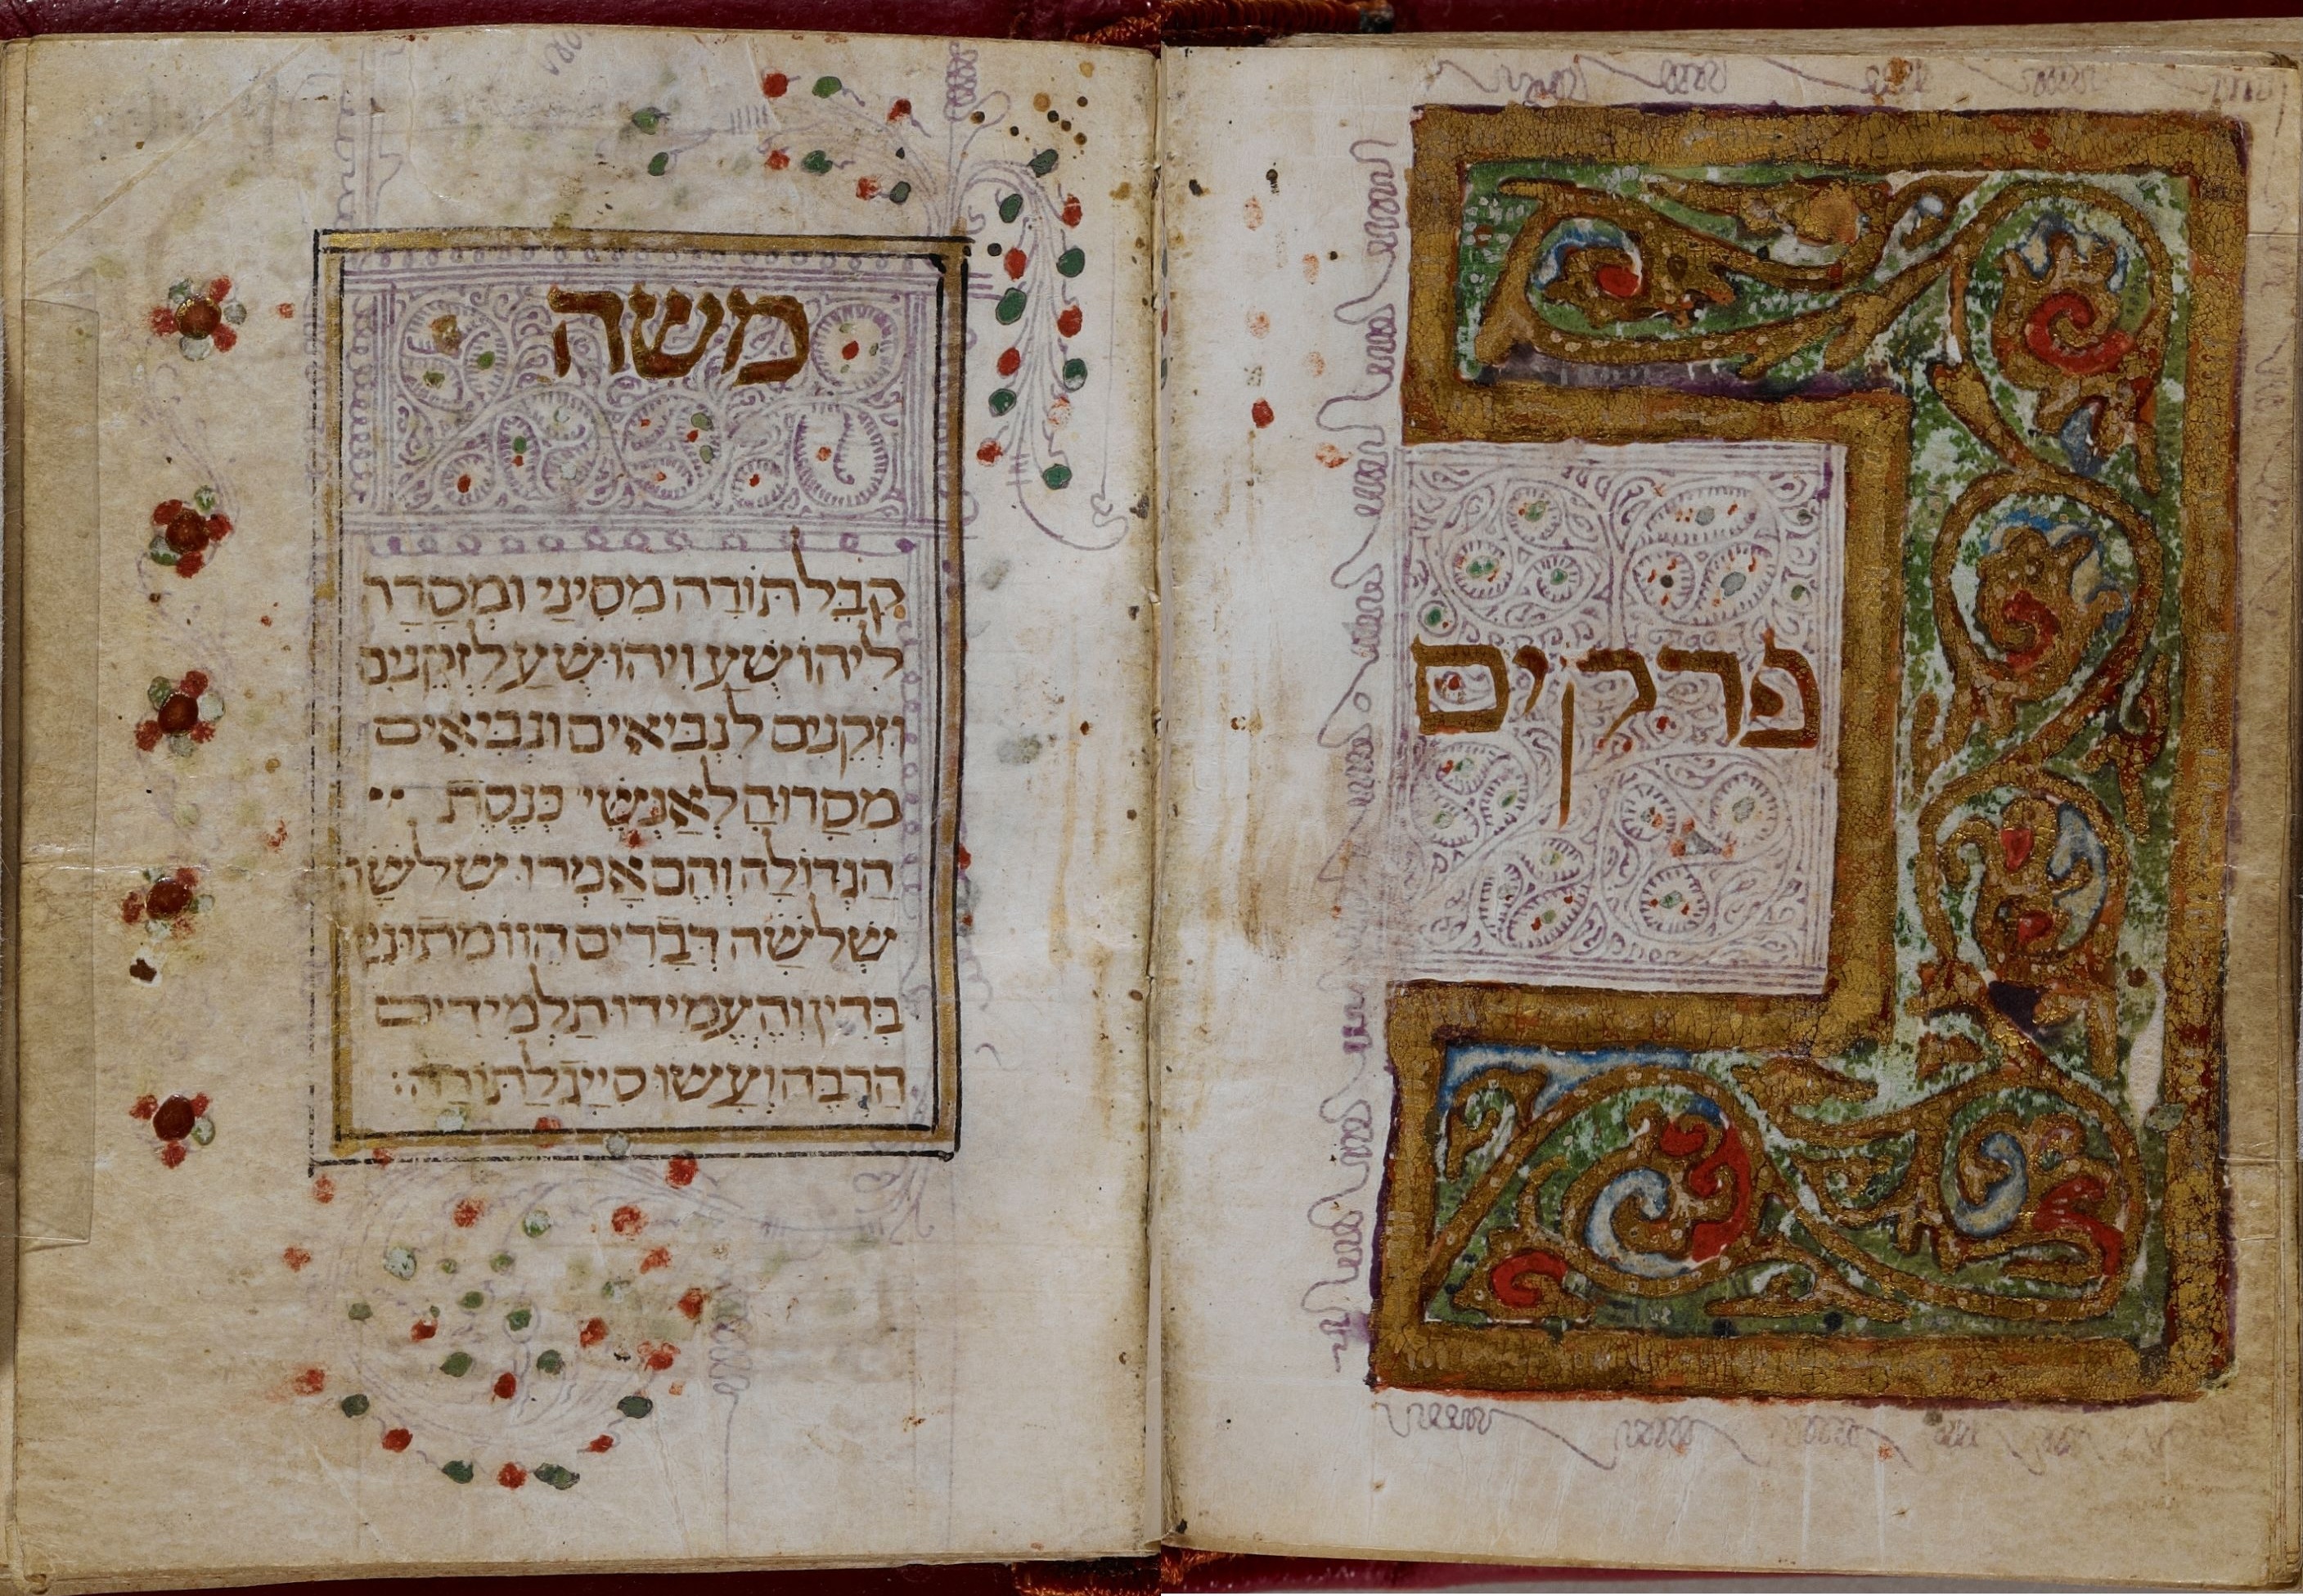 פרקים
משה
קִבֵּל תּוֹרָה מִסִּינַי וּמְסָרָהּ
לִיהוֹשֻׁעַ וִיהוֹשֻׁעַ לִזְקֵנִים
וּזְקֵנִים לִנְבִיאִים וּנְבִיאִים
מְסָרוּהָ לְאַנְשֵׁי כְּנֶסֶת
הַגְּדוֹלָה וְהֵם אָמְרוּ שְׁלֹשָׁה
שְׁלֹשָׁה דְּבָרִים הֱווּ מְתוּנִים
בַּדִּין וְהַעֲמִידוּ תַלְמִידִים
הַרְבֵּה וַעֲשׂוּ סְיָיג לַתּוֹרָה: